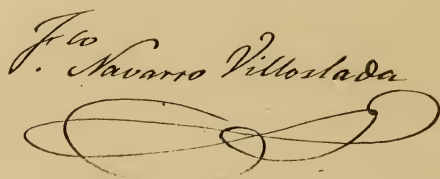 Fco
. Navarro Villoslada